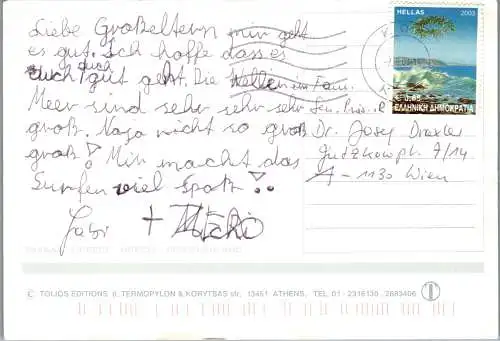 Liebe Großeltern mir geht
es gut. Ich hoffe dass es
euch auch gut geht. Die Wellen im
Meer sind sehr sehr sehr
groß. Naja nicht so groß
groß! Mir macht das
Surfen viel Spaß!
Gabi +
HELLAS 2003
€ 0,65
ΕΛΛΗΝΙΚΗ ΔΗΜΟΚΡΑΤΙΑ
Fam.
Dr. Josef Draxler
7/14
A-1130 Wien
© TOLIOS EDITIONS 8, TERMOPYLON & KORYTSAS str, 13451 ATHENS, TEL. 01-2316130, 2683406